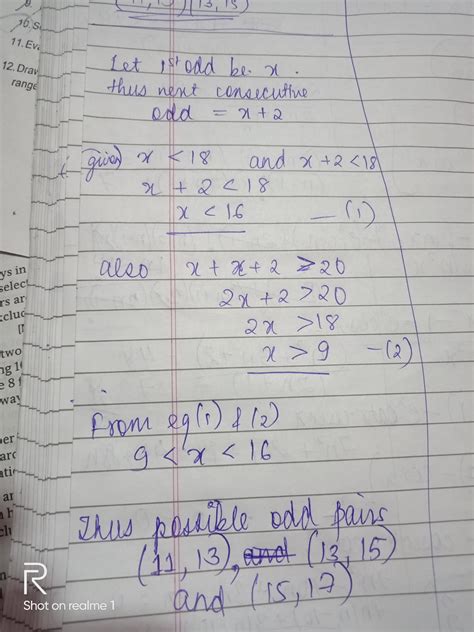 (11, 13) (13, 15)
10, S
11. Eva
12. Draw
range
Let 1st odd be x.
thus next consecutive
odd = x+2
given x < 18 and x+2 < 18
x + 2 < 18
x < 16 — (1)
also x + x + 2 > 20
2x + 2 > 20
2x > 18
x > 9 — (2)
From eq (1) & (2)
9 < x < 16
Thus possible odd pairs
(11, 13), and (13, 15)
and (15, 17)
ys in
selec
rs ar
two
ng 1
e 8
way
per
ard
R
Shot on realme 1